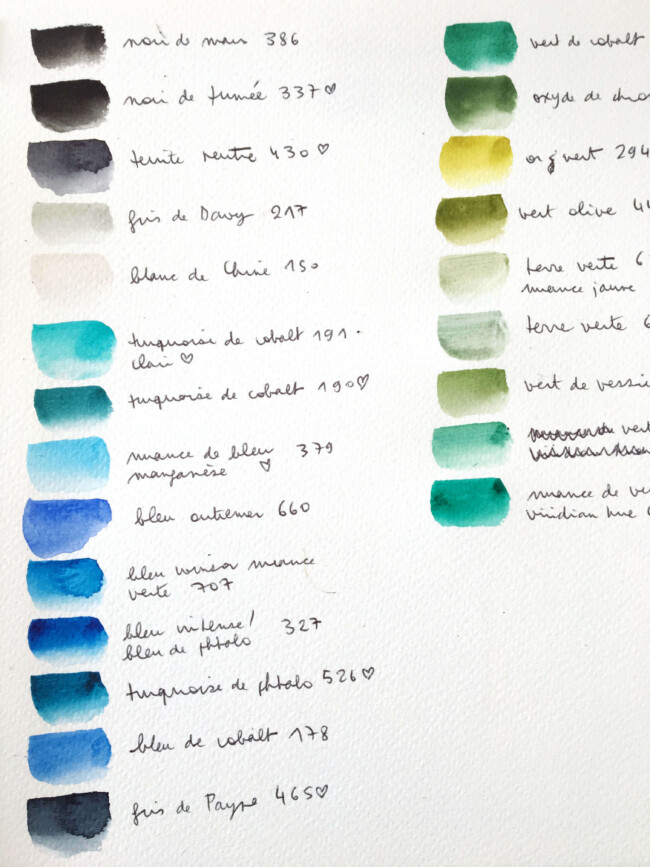 noir de mars 386
noir de fumée 337 ♡
teinte neutre 430 ♡
gris de Davy 217
blanc de Chine 150
turquoise de cobalt 191.
clair ♡
turquoise de cobalt 190 ♡
nuance de bleu 379
manganèse ♡
bleu outremer 660
bleu winsor nuance
verte 707
bleu intense/ 327
bleu de phtalo
turquoise de phtalo 526 ♡
bleu de cobalt 178
gris de Payne 465 ♡
vert de cobalt
oxyde de chro
or vert 294
vert olive 44
terre verte 6
nuance jaune
terre verte 6
vert de vessie
vert
nuance de ve
viridian hue